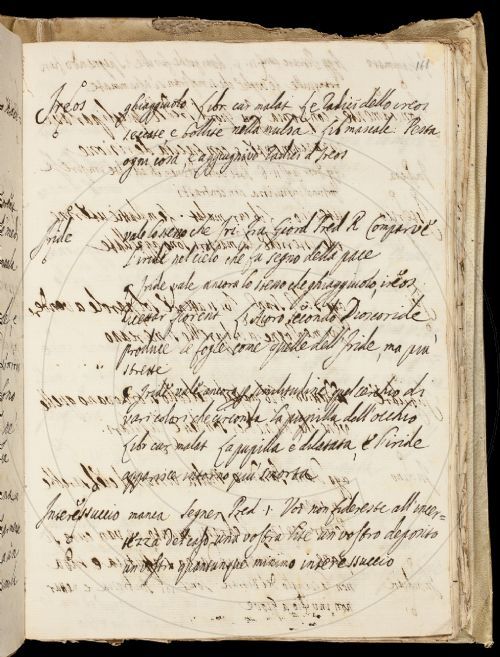 161
Ireos ghiaggiuolo Libr cur malat Le Radici dello ireos
seccate e bollite nella mulsa Lib mascale Pesta
ogni cosa e aggiugnivi Radici d'Ireos
Iride vale lo stesso che Iri Fra Giord Pred R Comparve
l'iride nel cielo che fa segno della pace
Iride vale ancora lo stesso che ghiaggiuolo, ireos
Ricettar Florent L'Acoro secondo Dioscoride
produce le foglie come quelle dell'Iride, ma più
strette
Iride vale ancora per similitudine quel cerchio di
vari colori che circonda la pupilla dell'occhio
Libr cur malat La pupilla è dilatata, e l'iride
apparisce intorno più smorta
Interessuccio manca Segner Pred 1. Voi non fidereste all'incer-
tezza del caso una vostra lite un vostro deposito
un vostro quantunque minimo interessuccio